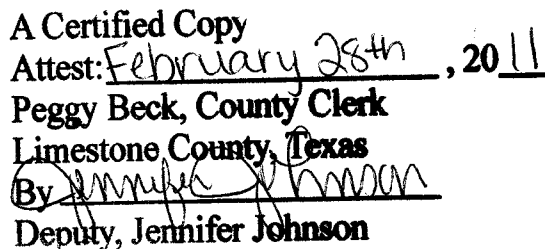 A Certified Copy
Attest: February 28th, 2011
Peggy Beck, County Clerk
Limestone County, Texas
By Jennifer Johnson
Deputy, Jennifer Johnson